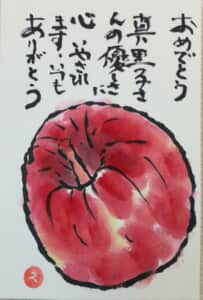 おめでとう
真黒子さ
んの優しさに
心 やされ
ます いつも
ありがとう